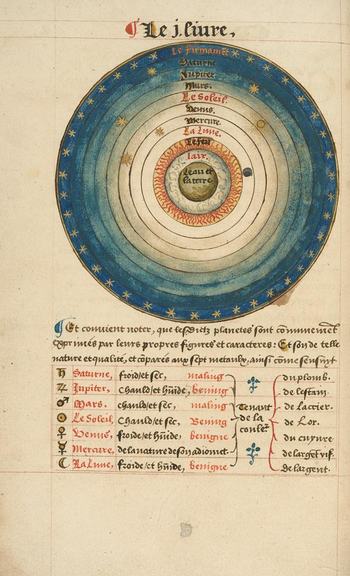 Le j. liure,
Le firmament
Saturne
Jupiter
Mars.
Le Soleil.
Venus.
Mercure.
La Lune.
Le feu
lair.
Leau et
la terre.
Et conuient noter, que lesditz planetes sont communement
exprimés par leurs propres figures et caracteres: Et son de telle
nature et qualité, et comparés aux sept metaulx, ainsi comme sensuyt
♄ Saturne, froid et sec, maling du plomb.
♃ Jupiter, Chauld et humide, bening de lestain.
♂ Mars. chauld et sec, maling de Lacier.
☉ Le Soleil, Chauld et sec, Bening tenant de la de Lor.
♀ Venus, froide et humide, benigne du cuyure
☿ Mercure, de la nature de son adioinct de largent vif.
☾ La Lune, froide et humide, benigne de largent.